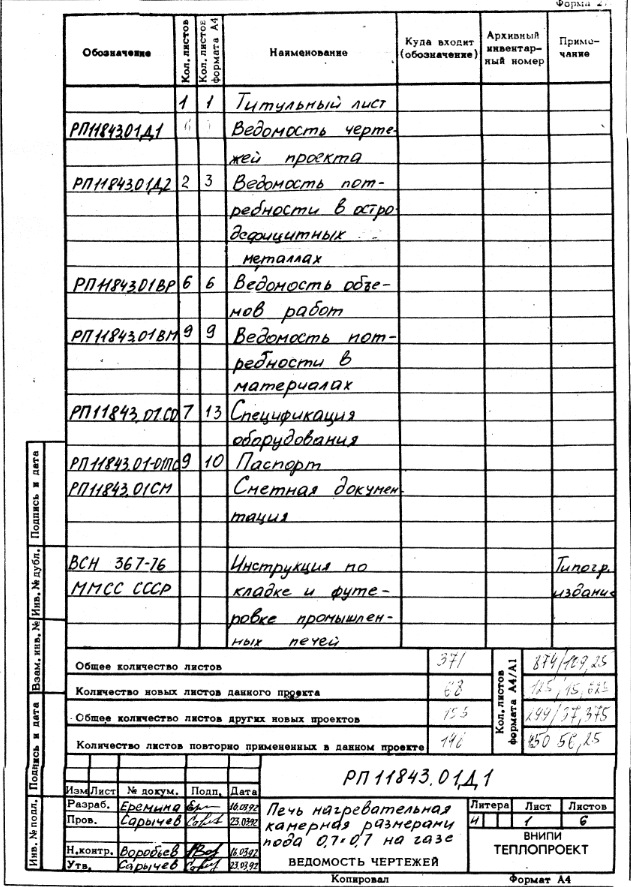 Форма 2
Обозначение
Кол. листов
Кол. листов формата А4
Наименование
Куда входит (обозначение)
Архивный инвентар-ный номер
Приме-чание
1 1 Титульный лист
РП11843.01Д1 6 Ведомость черте-
жей проекта
РП11843.01Д2 2 3 Ведомость пот-
ребности в остро
дефицитных
металлах
РП11843.01ВР 6 6 Ведомость объе-
мов работ
РП11843.01ВМ 9 9 Ведомость пот-
ребности в
материалах
РП11843.01.СО 7 13 Спецификация
оборудования
РП11843.01-01ПС 9 10 Паспорт
РП11843.01СМ Сметная докумен-
тация
ВСН 367-76 Инструкция по Типогр.
ММСС СССР кладке и футе- издание
ровке промышлен-
ных печей
Общее количество листов 371 874/109,25
Количество новых листов данного проекта 68 125/15,625
Общее количество листов других новых проектов 299/37,375
Количество листов повторно примененных в данном проекте 146 450 56,25
Кол. листов формата А4/А1
РП11843.01Д1
Изм Лист № докум. Подп. Дата
Разраб. Еремина 16.03.92
Пров. Сарычев 23.03.92
Н.контр. Воробьев 16.03.92
Утв. Сарычев 23.03.92
Печь нагревательная
камерная размерами
пода 0,7×0,7 на газе
ВЕДОМОСТЬ ЧЕРТЕЖЕЙ
Литера Лист Листов
И 1 6
ВНИПИ
ТЕПЛОПРОЕКТ
Копировал Формат А4
Инв. № подл.
Подпись и дата
Взам. инв. №
Инв. № дубл.
Подпись и дата